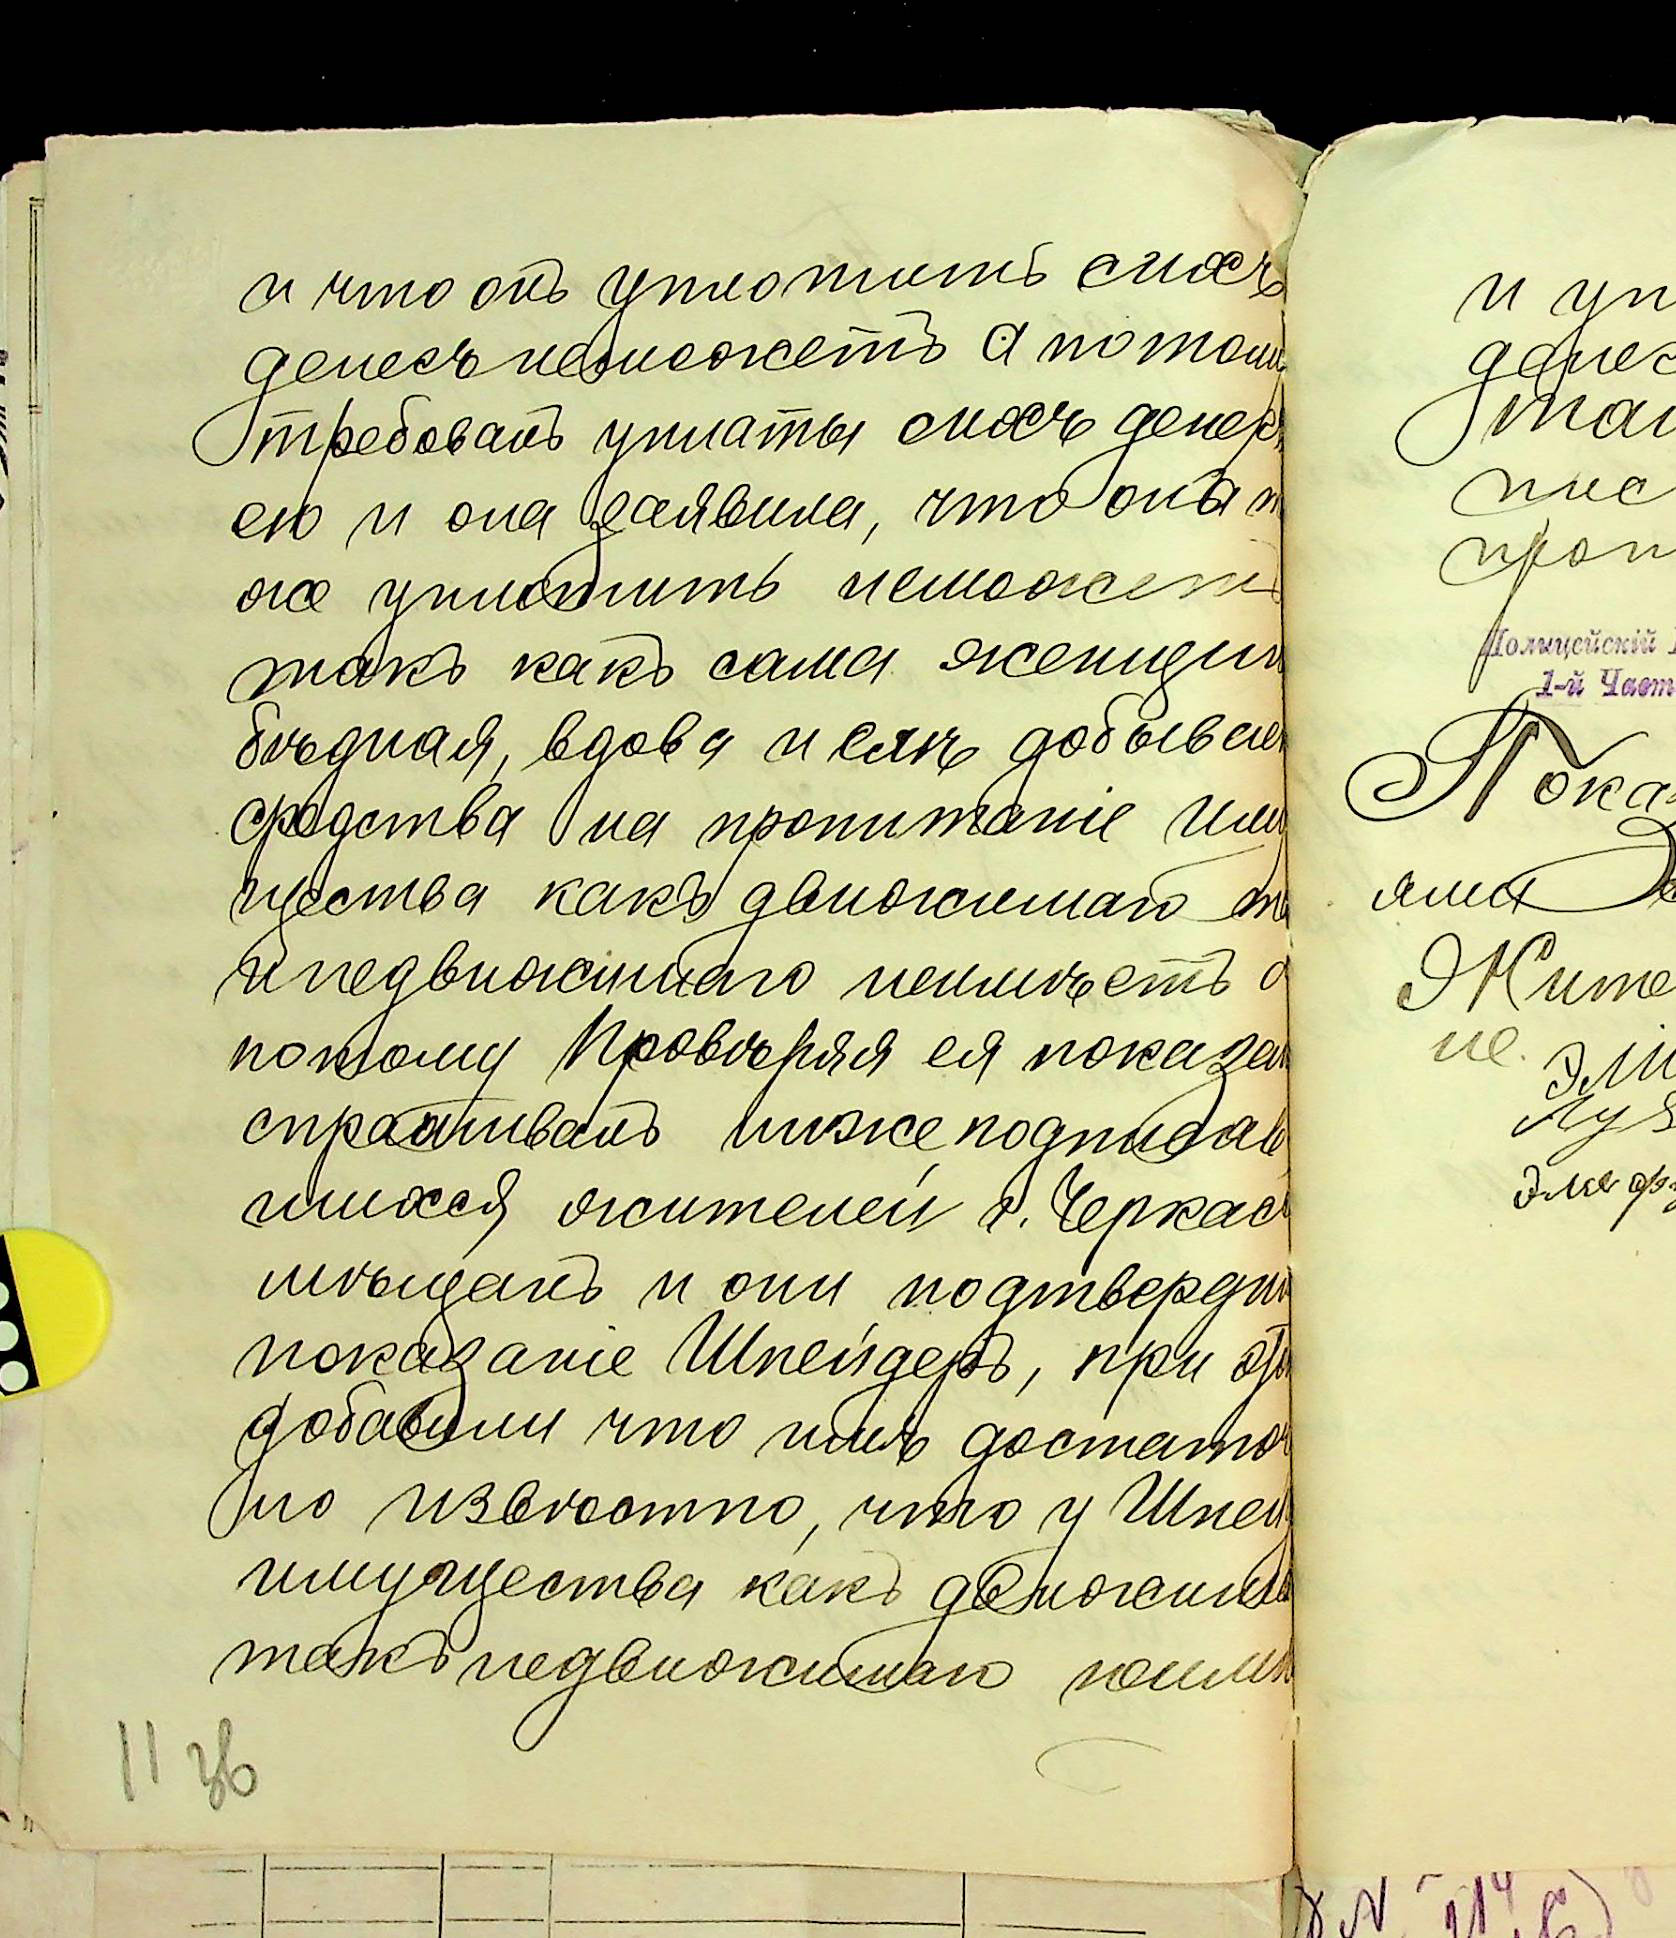 и что онъ уплотить сихъ
денегъ неможетъ а потому
требовалъ уплаты сихъ денегъ
ею и она заявила, что она т
же уплотить неможетъ
такъ какъ сама женщин
бѣдная, вдова и еле добывае
средства на пропитаніе Иму
щества какъ движимаго т
и недвижимаго неимѣетъ а
потому Провѣряя ея показан
спрашивалъ ниже подписав
шихся жителей г. Черкасъ
мѣщанъ и они подтвердил
показаніе Шнейдеръ, при этом
добавили что имъ достаточ
но извѣстно, что у Шней
имущества какъ движима
такъ недвижимаго неимѣ
11 зв
и уп
денег
так
пис
прот
Полицейскій
1-й Част
Показ
яма
Жите
не.